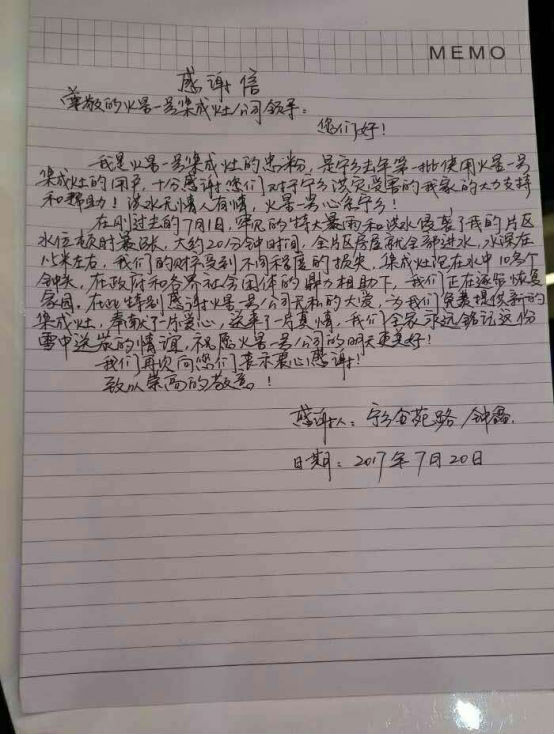 MEMO
感谢信
尊敬的火星一号集成灶公司领导:
您们好!
我是火星一号集成灶的忠粉,是宁乡去年第一批使用火星一号
集成灶的用户,十分感谢您们对于宁乡洪灾受害的我家的大力支持
和帮助!洪水无情人有情,火星一号心系宁乡!
在刚过去的7月1日,罕见的特大暴雨和洪水侵袭了我的片区
水位顿时暴涨,大约20分钟时间,全片区房屋就全部进水,水深在
1.5米左右,我们的财产受到不同程度的损失,集成灶泡在水中10多个
钟头,在政府和各界社会团体的鼎力相助下,我们正在逐步恢复
家园。在此特别感谢火星一号公司无私的大爱,为我们免费提供新的
集成灶,奉献了一片爱心,送来了一片真情,我们全家永远铭记这份
雪中送炭的情谊,祝愿火星一号公司的明天更美好!
我们再次向您们表示衷心感谢!
致以崇高的敬意。!
感谢人:宁乡金苑路 钟鑫.
日期:2017年7月20日